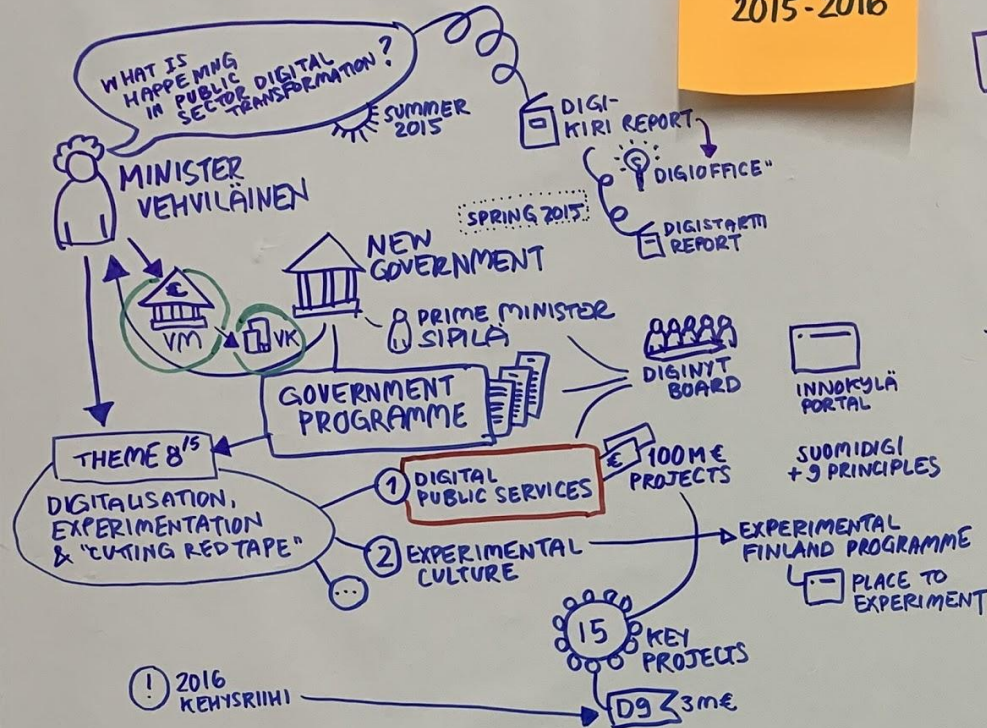 2015-2016
WHAT IS
HAPPENING
IN PUBLIC
SECTOR DIGITAL
TRANSFORMATION?
SUMMER
2015
DIGI-
KIRI REPORT
DIGIOFFICE"
DIGISTARTTI
REPORT
SPRING 2015
MINISTER
VEHVILÄINEN
NEW
GOVERNMENT
PRIME MINISTER
SIPILÄ
€
VM
VK
GOVERNMENT
PROGRAMME
DIGINYT
BOARD
INNOKYLÄ
PORTAL
THEME 8"5
DIGITALISATION,
EXPERIMENTATION
& "CUTING RED TAPE"
1 DIGITAL
PUBLIC SERVICES
€ 100M€
PROJECTS
SUOMIDIGI
+ 9 PRINCIPLES
2 EXPERIMENTAL
CULTURE
...
EXPERIMENTAL
FINLAND PROGRAMME
PLACE TO
EXPERIMENT
15 KEY
PROJECTS
! 2016
KEHYSRIIHI
D9 3M€